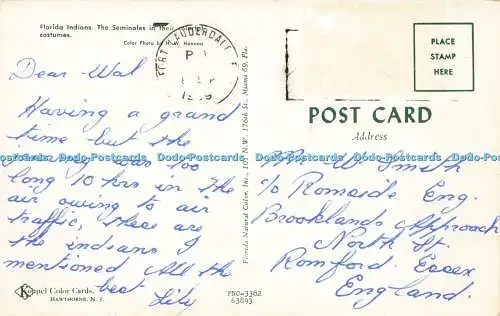 Florida Indians. The Seminoles in their
costumes.
Color Photo by H. W. Hannau
FORT LAUDERDALE
PLACE
STAMP
HERE
POST CARD
Address
Dear Wal
Having a grand
time but the
was too
long 10 hrs in the
air owing to air
traffic, these are
the indians I
mentioned All the
best Lily
Mr W. Smith
c/o Romside Eng.
Brooklands Approach
North St.
Romford. Essex
England.
Florida Natural Color, Inc., 101 N.W. 176th St., Miami 69, Fla.
Dodo-Postcards Dodo-Postcards Dodo-Postcards Dodo-Postcards Dodo-Postcards
Koppel Color Cards.
HAWTHORNE, N. J.
FNC-3362
63893